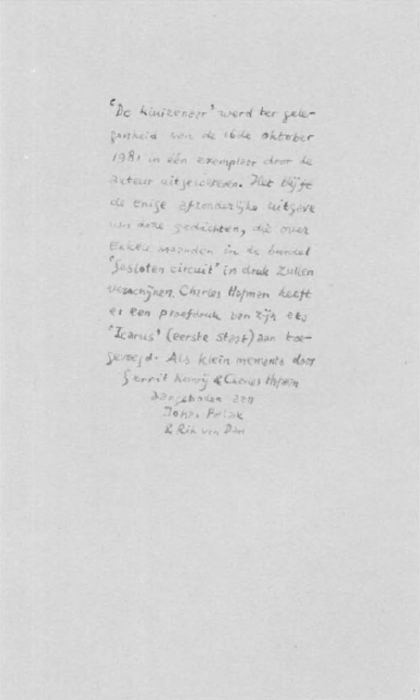 "De kluizenaar" werd ter gele-
genheid van de 16de oktober
1981 in één exemplaar door de
auteur uitgeschreven. Het blijft
de enige afzonderlijke uitgave
van deze gedichten, die over
enkele maanden in de bundel
"Gesloten circuit" in druk zullen
verschijnen. Charles Hofman heeft
er een proefdruk van zijn ets
"Icarus" (eerste staat) aan toe-
gevoegd. Als klein memento door
Gerrit Komrij & Charles Hofman
aangeboden aan
Johan Polak
& Rik van Dam